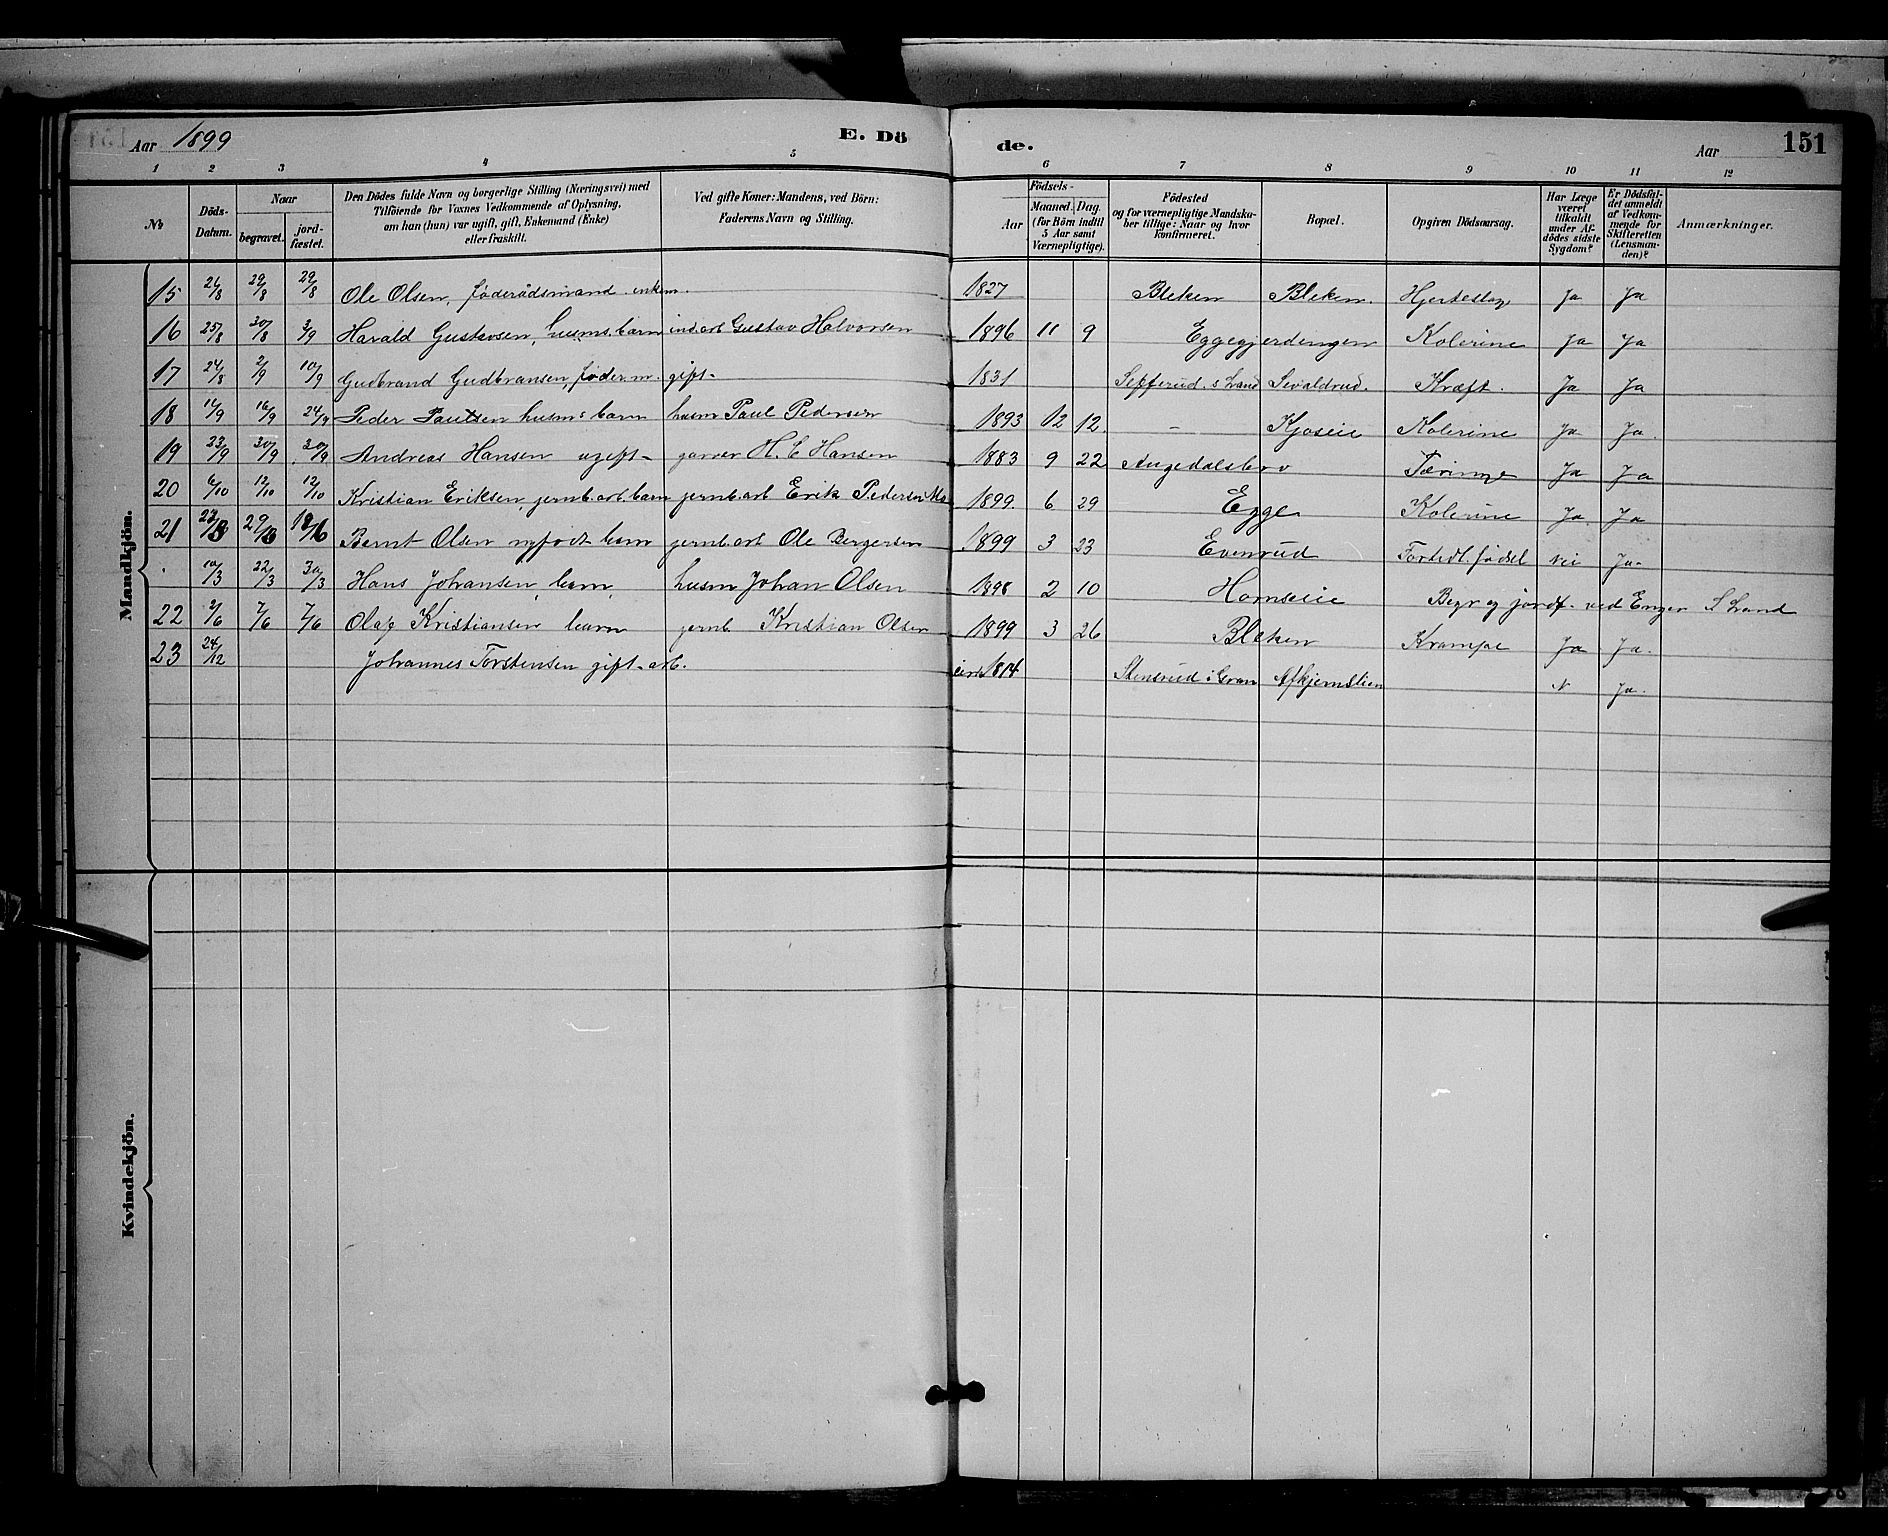 Aar 1899
E. Dö
de.
Aar
151
1 2 3 4 5 6 7 8 9 10 11 12
No
Döds-Datum.
Naar
begravet.
jord-fæstet.
Den Dödes fulde Navn og borgerlige Stilling (Næringsvei) med
Tilföiende for Voxnes Vedkommende af Oplysning,
om han (hun) var ugift, gift, Enkemand (Enke)
eller fraskilt.
Ved gifte Koner: Mandens, ved Börn:
Faderens Navn og Stilling.
Födsels-
Aar
Maaned. Dag.
(for Börn indtil
5 Aar samt
Værnepligtige).
Födested
og for værnepligtige Mandska-
ber tillige: Naar og hvor
konfirmeret.
Bopæl.
Opgiven Dödsaarsag.
Har Læge
været
tilkaldt
under Af-
dödes sidste
Sygdom?
Er Dödsfal-
det anmeldt
af Vedkom-
mende for
Skifteretten
(Lensman-
den)?
Anmærkninger.
Mandkjön.
15 29/8 29/8 Ole Olsen, föderådsmand enkem. 1827 Bleken Bleken. Hjerteslag Ja Ja
16 25/8 30/8 3/9 Harald Gustavsen, husms. barn ind.arb Gustav Halvorsen 1896 11 9 Eggegjerdengen Kolerine Ja Ja
17 24/8 2/9 10/9 Gudbrand Gudbransen, föder.m. gift- 1831 Sevaldrud. Kræft. Ja Ja
18 16/9 24/9 Peder Paulsen husms barn husm Paul Pedersen 1893 12 12. - Kjoseie Kolerine Ja Ja.
19 23/9 30/9 30/9 Andreas Hansen ugift- garver H. E Hansen 1883 9 22 Tæringe Ja Ja
20 6/10 12/10 12/10 Kristian Eriksen, jernb.arb. barn jernb.arb Erik Pedersen 1899. 6 29 Egge Kolerine Ja. Ja
21 Bernt Olsen nyfödt barn jernb.arb Ole Bergersen 1899 3 23 Evenrud Fortidl. födsel nei Ja.
10/3 22/3 30/3 Hans Johansen, barn, husm Johan Olsen 1898 2 10 Hornseie Begr og jordf. ved Enger S Land
22 2/6 7/6 7/6 Olaf Kristiansen barn jernb. Kristian Olsen 1899 3 26 Bleken Krampe Ja Ja.
23 24/12 Johannes Torstensen gift. arb. 1814 Stensrud i Gran N Ja.
Kvindekjön.